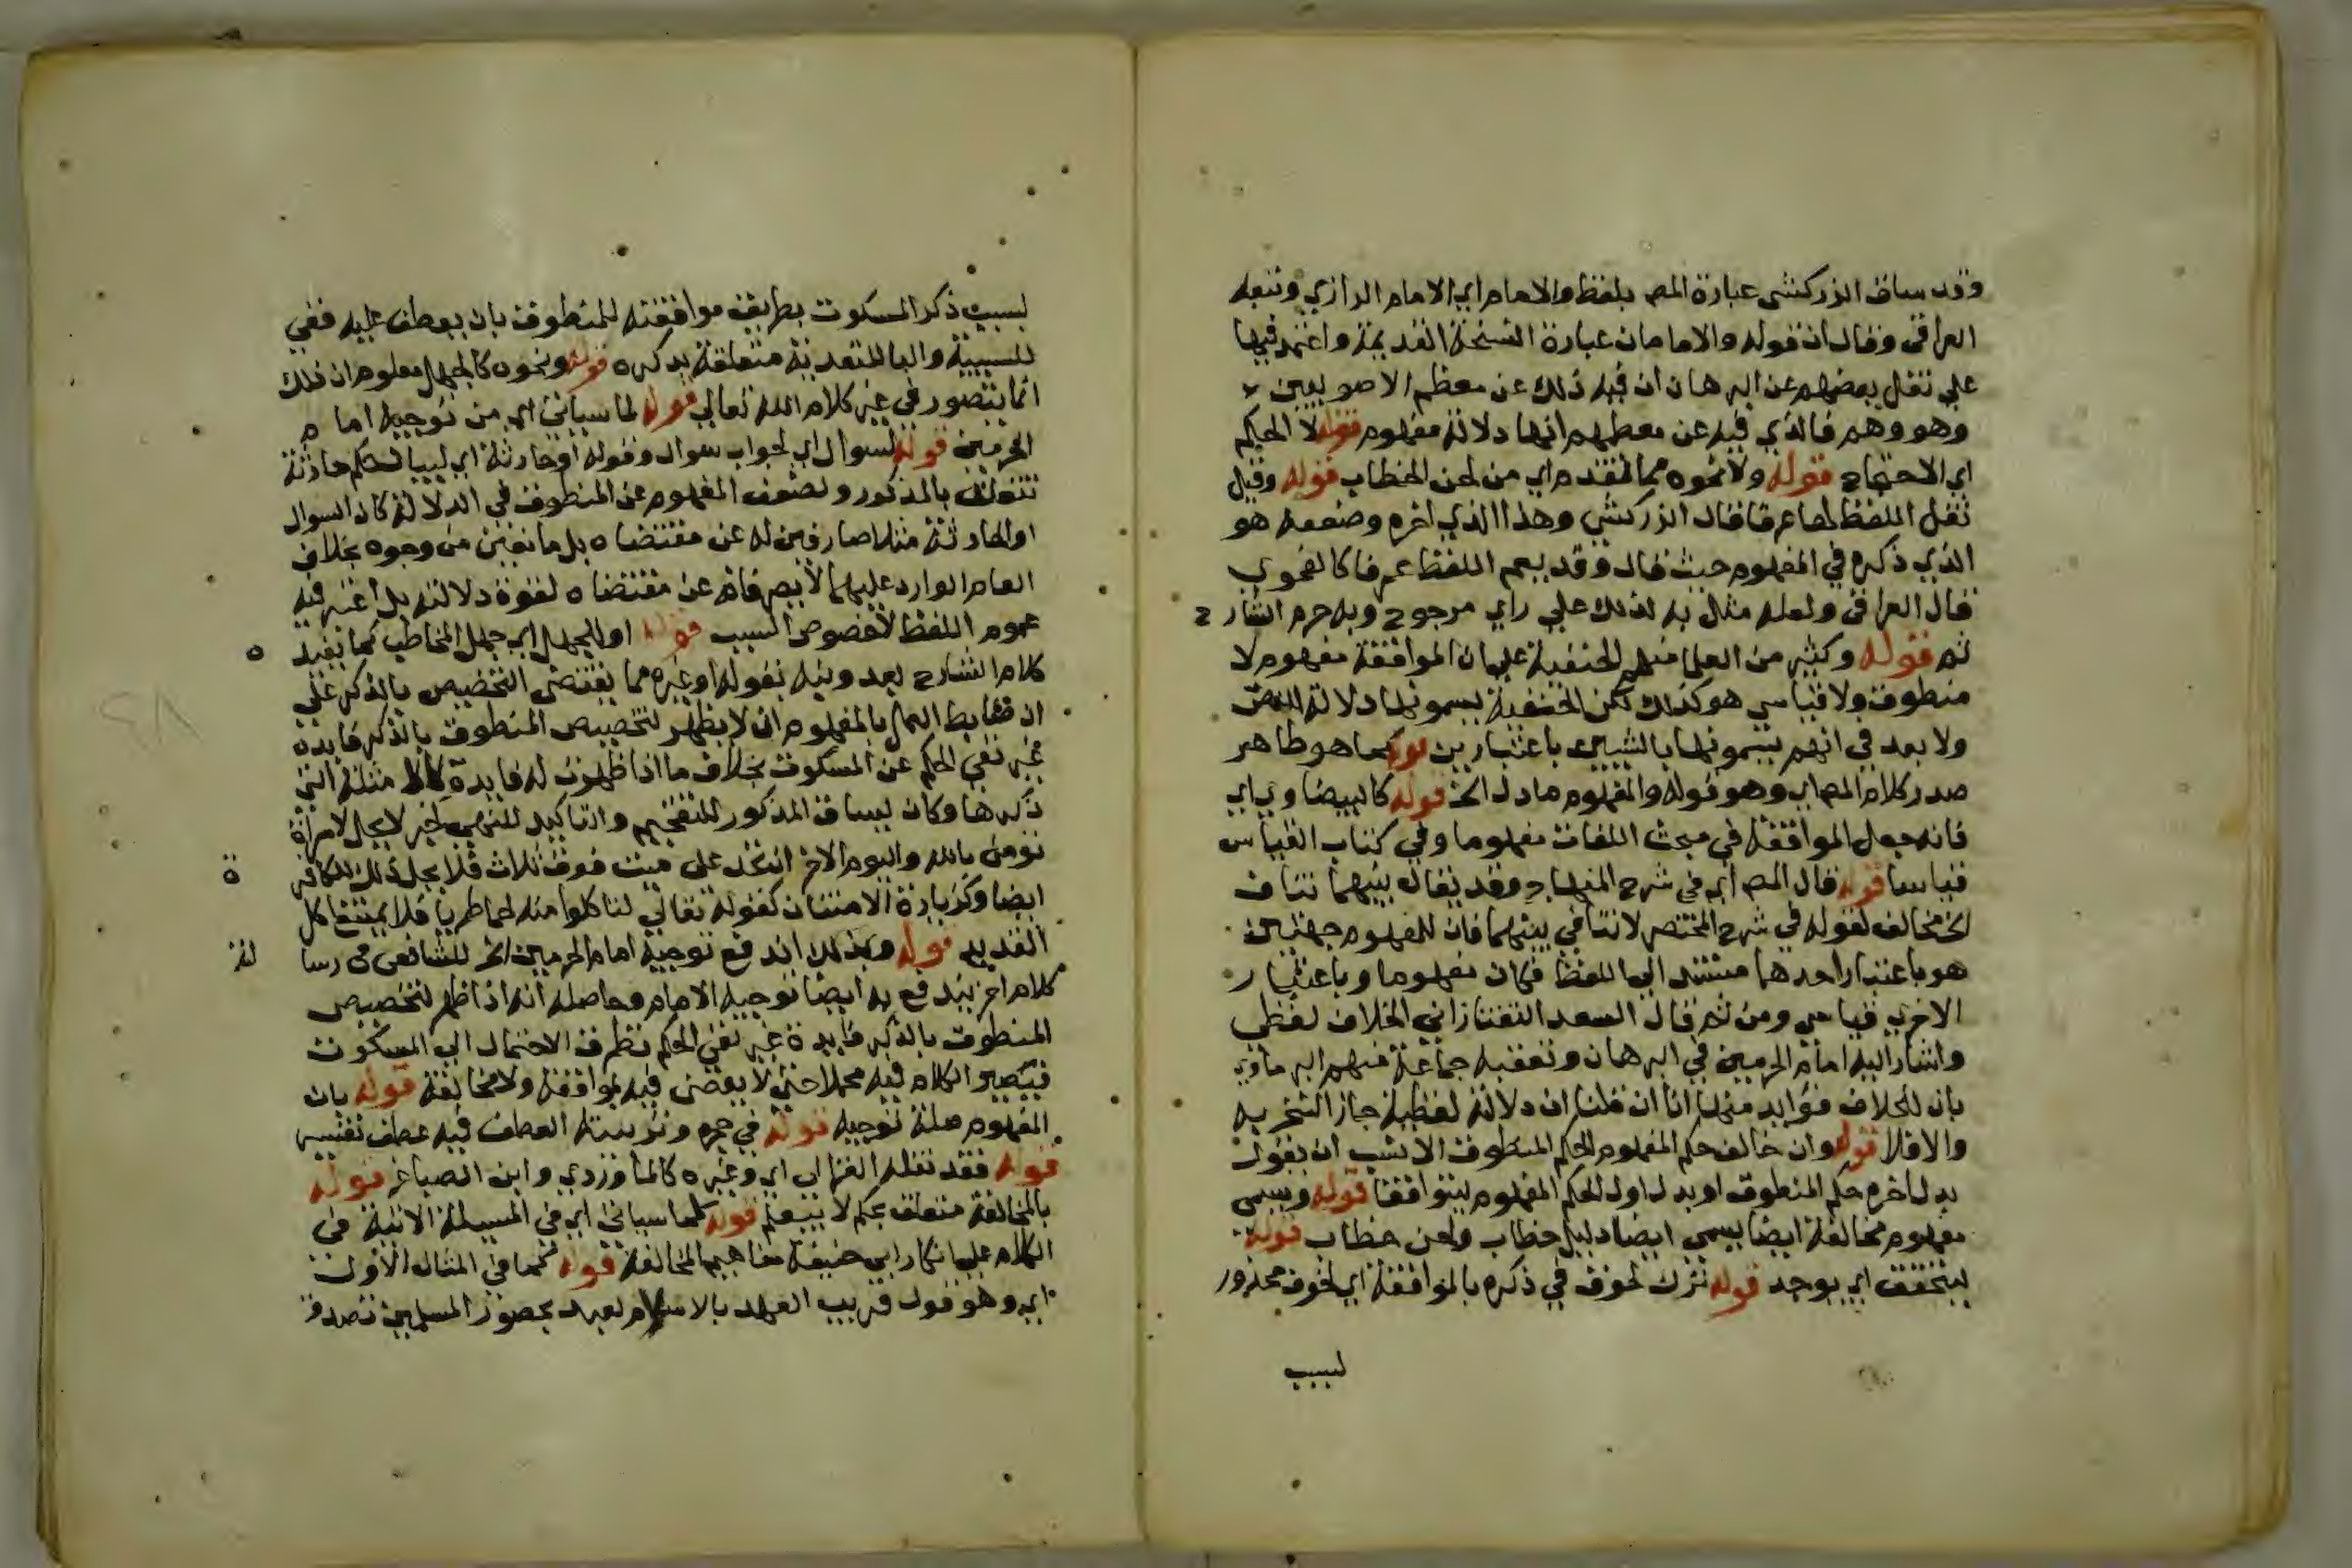 وقد ساق الزركشي عبارة المص بلفظ والامام اي الامام الرازي وتبعه
العراقي وقال ان قوله والامامان عبارة النسخة القديمة واعتمد فيها
علي نقل بعضهم عن البرهان ان فيه ذلك عن معظم الاصوليين
وهو وهم فالذي فيه عن معظمهم انها دلالة مفهوم قوله لا الحكم
اي الاحتجاج قوله ولا نحوه مما تقدم اي من لحن الخطاب قوله وقيل
نقل اللفظ لها عرفا قال الزركشي وهذا الذي اخره وضعفه هو
الذي ذكره في المفهوم حيث قال وقد يعم اللفظ عرفا كالفحوي
قال العراقي ولعله مثل به لذلك علي راي مرجوح وبه جزم الشارح
ثم قوله وكثير من العلما منهم الحنفية علي ان الموافقة مفهوم لا
منطوق ولا قياسي هو كذلك لكن الحنفية يسمونها دلالة النص
ولا بعد في انهم يسمونها بالشيين باعتبارين قوله كما هو ظاهر
صدر كلام المص اي وهو قوله والمفهوم ما دل الخ قوله كالبيضاوي اي
فانه جعل الموافقة في مبحث اللغات مفهوما وفي كتاب القياس
قياسا قوله قال المص اي في شرح المنهاج وقد يقال بينهما تناف
الخ مخالف لقوله في شرح المختصر لا تنافي بينهما فان للمفهوم جهتين
هو باعتبار احدهما مستند الي اللفظ فكان مفهوما وباعتبار
الاخري قياس ومن ثم قال السعد التفتازاني الخلاف لفظي
واشار اليه امام الحرمين في البرهان وتعقبه جماعة منهم البرماوي
بان للخلاف فوايد منها انا ان قلنا ان دلالة لفظية جاز النسخ به
والا فلا قوله وان خالف حكم المفهوم الحكم المنطوق الانسب ان يقول
بدل اخره حكم المنطوق او بدل اول الحكم المفهوم ليتوافقا قوله ويسمى
مفهوم مخالفة ايضا يسمي ايضا دليل خطاب ولحن خطاب قوله
ليتحقق اي يوجد قوله ترك لخوف في ذكره بالموافقة اي لخوف محذور
لسبب
لسبب ذكر المسكوت بطريق موافقته للمنطوق بان يعطف عليه ففي
للسببية والبا للتعدية متعلقة بذكره قوله ونحوه كالجهل معلوم ان ذلك
انما يتصور في غير كلام الله تعالي قوله لما سياتي اي من توجيه امام
الحرمين قوله لسوال اي لجواب سوال وقوله او حادثة اي لبيان حكم حادثة
تتعلق بالمذكور ولضعف المفهوم عن المنطوق في الدلالة كان السوال
او الحادثة مثلا صارفين له عن مقتضاه بل مانعين من وجوه بخلاف
العام الوارد عليهما لا يصرفانه عن مقتضاه لقوة دلالته بل اعتبر فيه
عموم اللفظ لا خصوص السبب قوله او للجهل اي جهل المخاطب كما يفيده
كلام الشارح بعد ونبه بقوله او غيره مما يقتضي التخصيص بالذكر علي
ان ضابط العمل بالمفهوم ان لا يظهر لتخصيص المنطوق بالذكر فايدة
غير نفي الحكم عن المسكوت بخلاف ما اذا ظهرت له فايدة مثله التي
ذكرها وكان لسياق المذكور للتفخيم والتاكيد للنهي لخبر لا يحل لامراة
تومن بالله واليوم الاخر ان تحد علي ميت فوق ثلاث فلا يحل ذلك للكافرة
ايضا وكزيادة الامتنان كقوله تعالي لتاكلوا منه لحما طريا فلا يمتنع اكل
القديد قوله وبذلك اندفع توجيه امام الحرمين الخ للشافعي في رسالته
كلام اخر يندفع به ايضا توجيه الامام وحاصله انه اذا ظهر لتخصيص
المنطوق بالذكر فايدة غير نفي الحكم تطرق الاحتمال الي المسكوت
فيصير الكلام فيه مجملا حتي لا يقضى فيه بموافقة ولا مخالفة قوله بان
المفهوم صلة توجيه قوله في جره وثوبيته العطف فيه عطف تفسير
قوله فقد نقله الغزالي اي وغيره كالماوردي وابن الصباغ قوله
بالمخالفة متعلق بحكم لا بيعلم قوله كما سياتي اي في المسيلة الاتية في
الكلام علي انكار ابي حنيفة مفاهيم المخالفة قوله كما في المثال الاول
اي وهو قول قريب العهد بالاسلام لعبده بحضور المسلمين تصدق